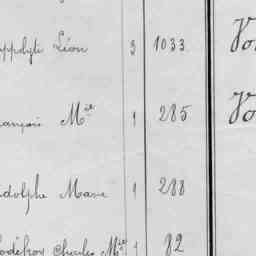 ippolyte Léon 3 1033 Vo
rançois Mie 1 285 Vo
dolphe Marie 1 288
odéfroy Charles Mie 1 82